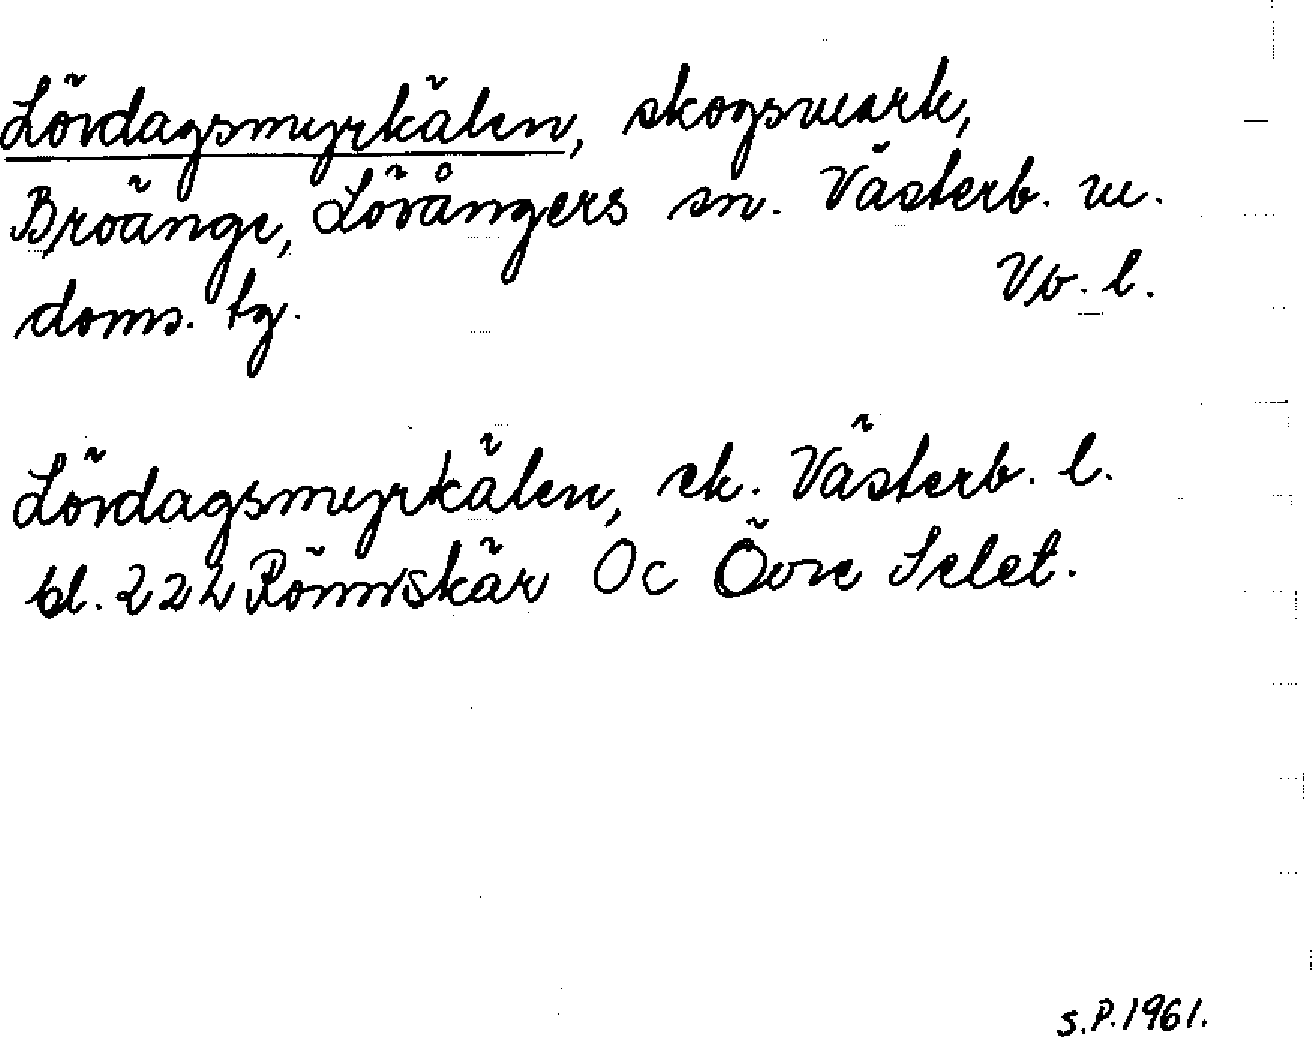 Lördagsmyrkälen, skogsmark,
Broänge, Lövångers sn. Västerb. m.
doms. tg. Vb. l.
Lördagsmyrkälen, ek. Västerb. l.
bl. 222 Rönnskär Oc Övre Selet.
S.P.1961.